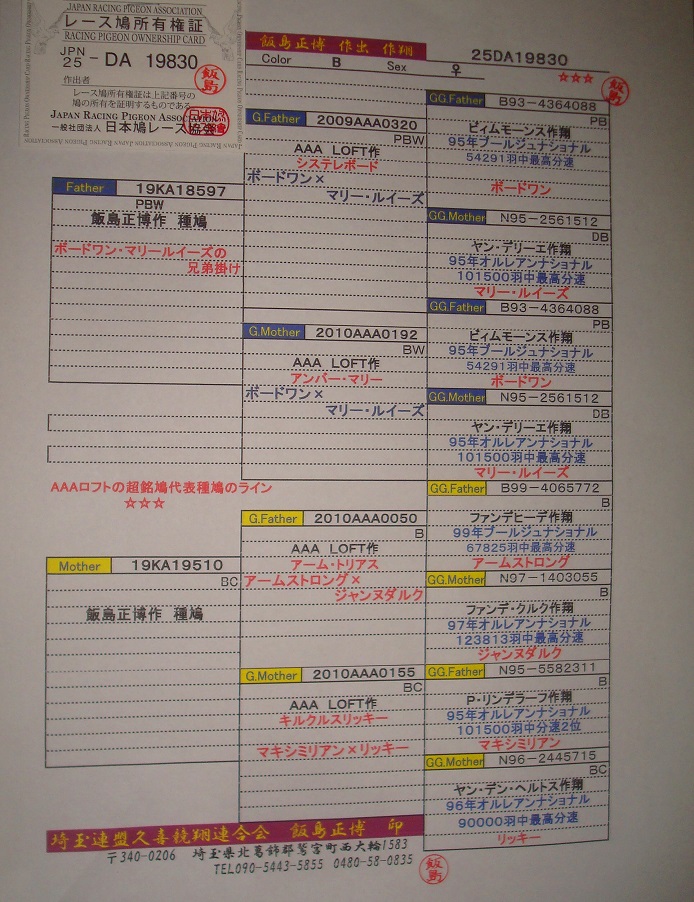 JAPAN RACING PIGEON ASSOCIATION
レース鳩所有権証
RACING PIGEON OWNERSHIP CARD
JPN
25 - DA 19830
作出者
飯島
レース鳩所有権証は上記番号の
鳩の所有を証明するものである
JAPAN RACING PIGEON ASSOCIATION
一般社団法人 日本鳩レース協会
飯島正博 作出 作翔
25DA19830
Color B Sex ♀
☆☆☆
飯島
Father 19KA18597
PBW
飯島正博作 種鳩
ボードワン・マリールイーズの
兄弟掛け
AAAロフトの超銘鳩代表種鳩のライン
☆☆☆
Mother 19KA19510
BC
飯島正博作 種鳩
G.Father 2009AAA0320
PBW
AAA LOFT作
システレボード
ボードワン×
マリー・ルイーズ
G.Mother 2010AAA0192
BW
AAA LOFT作
アンバー・マリー
ボードワン×
マリー・ルイーズ
G.Father 2010AAA0050
B
AAA LOFT作
アーム・トリアス
アームストロング×
ジャンヌダルク
G.Mother 2010AAA0155
BC
AAA LOFT作
キルクルスリッキー
マキシミリアン×リッキー
GG.Father B93-4364088
PB
ビィムモーンス作翔
95年ブールジュナショナル
54291羽中最高分速
ボードワン
GG.Mother N95-2561512
DB
ヤン・デリーエ作翔
95年オルレアンナショナル
101500羽中最高分速
マリー・ルイーズ
GG.Father B93-4364088
PB
ビィムモーンス作翔
95年ブールジュナショナル
54291羽中最高分速
ボードワン
GG.Mother N95-2561512
DB
ヤン・デリーエ作翔
95年オルレアンナショナル
101500羽中最高分速
マリー・ルイーズ
GG.Father B99-4065772
B
ファンデヒーデ作翔
99年ブールジュナショナル
67825羽中最高分速
アームストロング
GG.Mother N97-1403055
B
ファンデ・クルク作翔
97年オルレアンナショナル
123813羽中最高分速
ジャンヌダルク
GG.Father N95-5582311
B
P・リンデラーフ作翔
95年オルレアンナショナル
101500羽中分速2位
マキシミリアン
GG.Mother N96-2445715
BC
ヤン・デン・ヘルトス作翔
96年オルレアンナショナル
90000羽中最高分速
リッキー
埼玉連盟久喜競翔連合会 飯島正博 印
〒340-0206 埼玉県北葛飾郡鷲宮町西大輪1583
TEL090-5443-5855 0480-58-0835
飯島